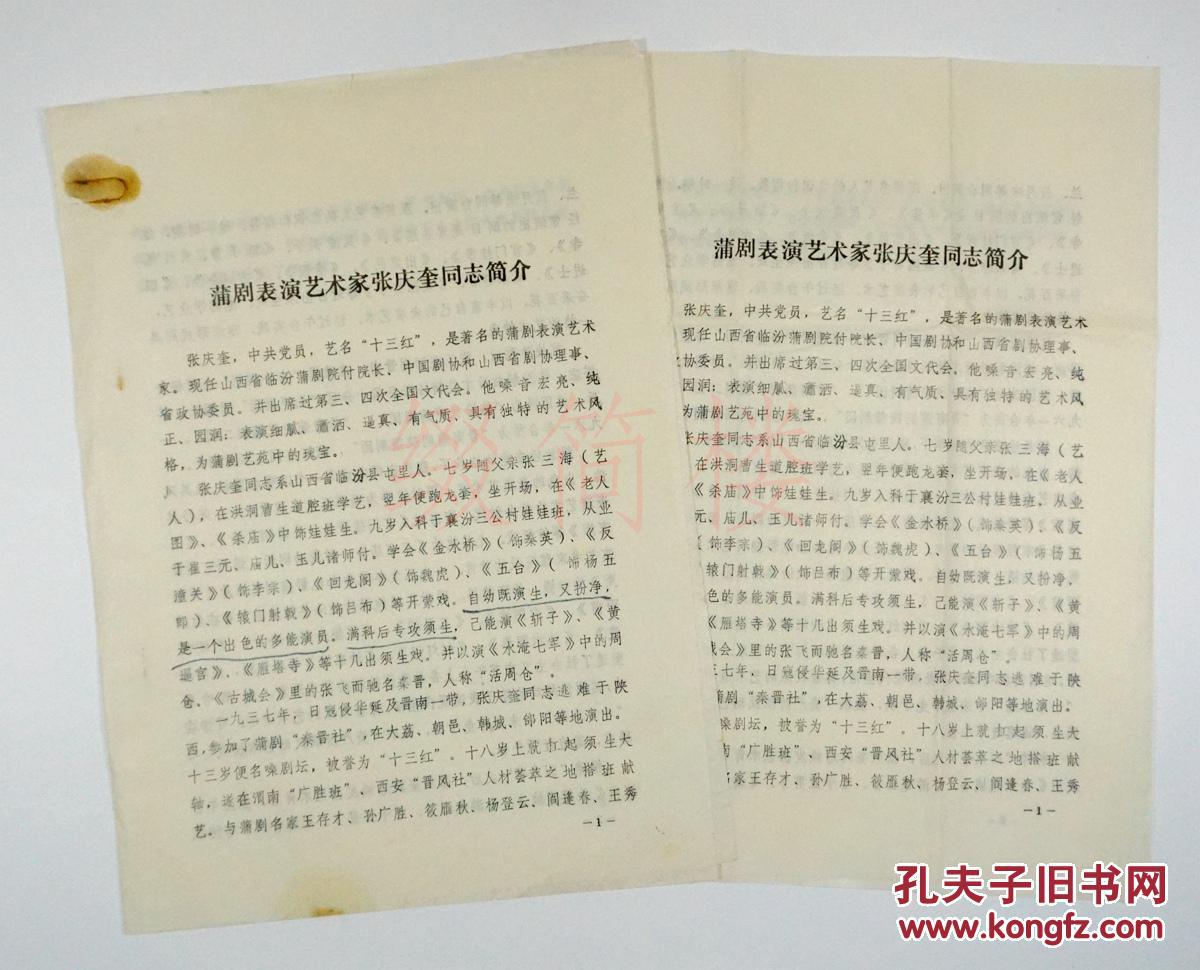 蒲剧表演艺术家张庆奎同志简介
张庆奎，中共党员，艺名“十三红”，是著名的蒲剧表演艺术
家。现任山西省临汾蒲剧院付院长、中国剧协和山西省剧协理事、
省政协委员。并出席过第三、四次全国文代会。他嗓音宏亮、纯
正、园润；表演细腻、潇洒、逼真、有气质、具有独特的艺术风
格，为蒲剧艺苑中的瑰宝。
张庆奎同志系山西省临汾县屯里人。七岁随父亲张三海（艺
人），在洪洞曹生道腔班学艺，翌年便跑龙套，坐开场，在《老人
图》、《杀庙》中饰娃娃生。九岁入科于襄汾三公村娃娃班，从业
于崔三元、庙儿、玉儿诸师付。学会《金水桥》（饰秦英）、《反
潼关》（饰李宗）、《回龙阁》（饰魏虎）、《五台》（饰杨五
郎）、《辕门射戟》（饰吕布）等开蒙戏。自幼既演生，又扮净，
是一个出色的多能演员。满科后专攻须生，己能演《斩子》、《黄
逼宫》、《雁塔寺》等十几出须生戏。并以演《水淹七军》中的周
仓、《古城会》里的张飞而驰名秦晋，人称“活周仓”。
一九三七年，日寇侵华延及晋南一带，张庆奎同志逃难于陕
西，参加了蒲剧“秦晋社”，在大荔、朝邑、韩城、郃阳等地演出。
十三岁便名噪剧坛，被誉为“十三红”。十八岁上就扛起须生大
轴，遂在渭南“广胜班”、西安“晋风社”人材荟萃之地搭班献
艺。与蒲剧名家王存才、孙广胜、筱雁秋、杨登云、阎逢春、王秀
－1－
蒲剧表演艺术家张庆奎同志简介
张庆奎，中共党员，艺名“十三红”，是著名的蒲剧表演艺术
现任山西省临汾蒲剧院付院长、中国剧协和山西省剧协理事、
协委员。并出席过第三、四次全国文代会。他嗓音宏亮、纯
园润；表演细腻、潇洒、逼真、有气质、具有独特的艺术风
为蒲剧艺苑中的瑰宝。
张庆奎同志系山西省临汾县屯里人。七岁随父亲张三海（艺
在洪洞曹生道腔班学艺，翌年便跑龙套，坐开场，在《老人
《杀庙》中饰娃娃生。九岁入科于襄汾三公村娃娃班，从业
元、庙儿、玉儿诸师付。学会《金水桥》（饰秦英）、《反
（饰李宗）、《回龙阁》（饰魏虎）、《五台》（饰杨五
辕门射戟》（饰吕布）等开蒙戏。自幼既演生，又扮净，
色的多能演员。满科后专攻须生，己能演《斩子》、《黄
《雁塔寺》等十几出须生戏。并以演《水淹七军》中的周
城会》里的张飞而驰名秦晋，人称“活周仓”。
三七年，日寇侵华延及晋南一带，张庆奎同志逃难于陕
蒲剧“秦晋社”，在大荔、朝邑、韩城、郃阳等地演出。
噪剧坛，被誉为“十三红”。十八岁上就扛起须生大
南“广胜班”、西安“晋风社”人材荟萃之地搭班献
名家王存才、孙广胜、筱雁秋、杨登云、阎逢春、王秀
－1－
缀简楼
孔夫子旧书网
www.kongfz.com